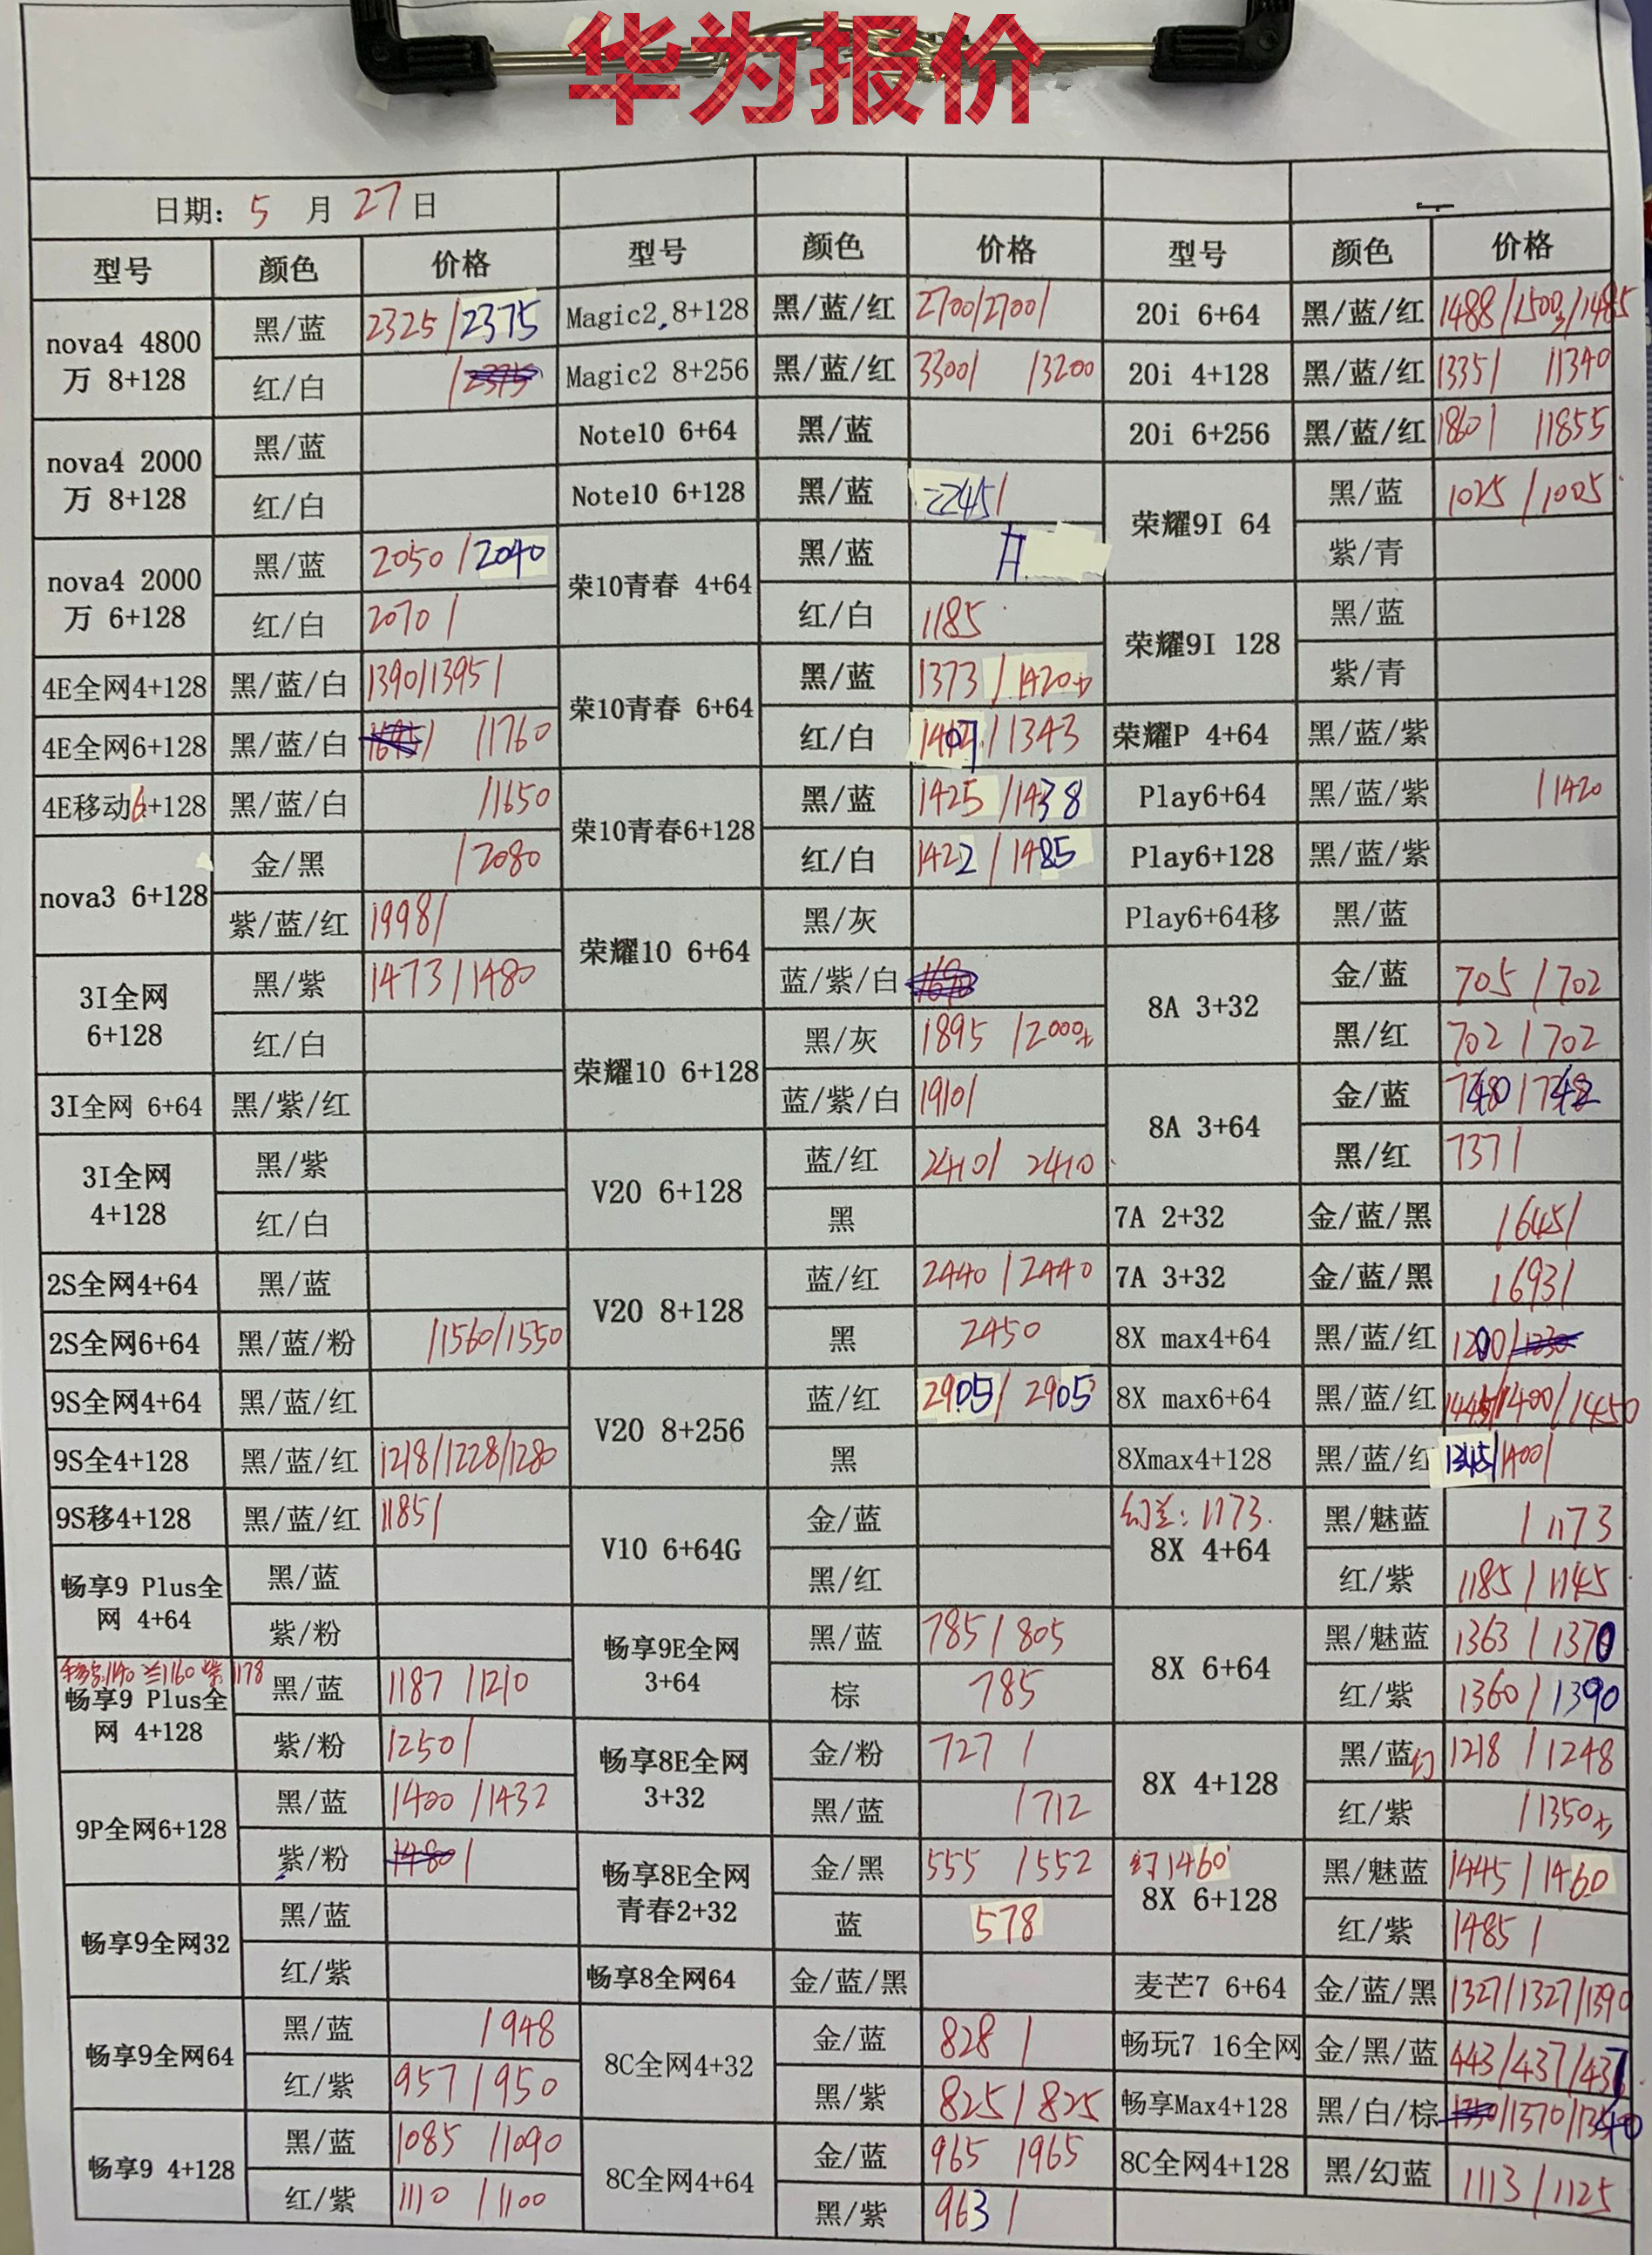 华为报价
日期: 5 月 27 日
型号 颜色 价格 型号 颜色 价格 型号 颜色 价格
nova4 4800万 8+128 黑/蓝 2325/2375
红/白
nova4 2000万 8+128 黑/蓝
红/白
nova4 2000万 6+128 黑/蓝 2050/2040
红/白 2070/
4E全网4+128 黑/蓝/白 1390/1395/
4E全网6+128 黑/蓝/白 /1760
4E移动6+128 黑/蓝/白 /1650
nova3 6+128 金/黑 /2080
紫/蓝/红 1998/
3I全网 6+128 黑/紫 1473/1480
红/白
3I全网 6+64 黑/紫/红
3I全网 4+128 黑/紫
红/白
2S全网4+64 黑/蓝
2S全网6+64 黑/蓝/粉 /1560/1550
9S全网4+64 黑/蓝/红
9S全4+128 黑/蓝/红 1218/1228/1280
9S移4+128 黑/蓝/红 1185/
畅享9 Plus全网 4+64 黑/蓝
紫/粉
1140 兰1160 紫1178
畅享9 Plus全网 4+128 黑/蓝 1187/1210
紫/粉 1250/
9P全网6+128 黑/蓝 1400/1432
紫/粉
畅享9全网32 黑/蓝
红/紫
畅享9全网64 黑/蓝 /948
红/紫 957/950
畅享9 4+128 黑/蓝 1085/1090
红/紫 1110/1100
Magic2 8+128 黑/蓝/红 2700/2700/
Magic2 8+256 黑/蓝/红 3300/ /3200
Note10 6+64 黑/蓝
Note10 6+128 黑/蓝 2245/
荣10青春 4+64 黑/蓝
红/白 1185
荣10青春 6+64 黑/蓝 1373/1420
红/白 1407/1343
荣10青春6+128 黑/蓝 1425/1438
红/白 1422/1485
荣耀10 6+64 黑/灰
蓝/紫/白
荣耀10 6+128 黑/灰 1895/2000
蓝/紫/白 1910/
V20 6+128 蓝/红 2410/2410
黑
V20 8+128 蓝/红 2440/2440
黑 2450
V20 8+256 蓝/红 2905/2905
黑
V10 6+64G 金/蓝
黑/红
畅享9E全网 3+64 黑/蓝 785/805
棕 785
畅享8E全网 3+32 金/粉 727/
黑/蓝 /712
畅享8E全网青春2+32 金/黑 555/552
蓝 578
畅享8全网64 金/蓝/黑
8C全网4+32 金/蓝 828/
黑/紫 825/825
8C全网4+64 金/蓝 965/965
黑/紫 963/
20i 6+64 黑/蓝/红 1488/1500/1485
20i 4+128 黑/蓝/红 1335/ /1340
20i 6+256 黑/蓝/红 1860/ /1855
荣耀9I 64 黑/蓝 1025/1005
紫/青
荣耀9I 128 黑/蓝
紫/青
荣耀P 4+64 黑/蓝/紫
Play6+64 黑/蓝/紫 /1420
Play6+128 黑/蓝/紫
Play6+64移 黑/蓝
8A 3+32 金/蓝 705/702
黑/红 702/702
8A 3+64 金/蓝 740/742
黑/红 737/
7A 2+32 金/蓝/黑 /645/
7A 3+32 金/蓝/黑 /693/
8X max4+64 黑/蓝/红 1200/
8X max6+64 黑/蓝/红 1445/1400/1450
8Xmax4+128 黑/蓝/红 1345/1400/
幻兰: 1173.
8X 4+64 黑/魅蓝 /1173
红/紫 1185/1145
8X 6+64 黑/魅蓝 1363/1370
红/紫 1360/1390
8X 4+128 黑/蓝幻 1218/1248
红/紫 /1350
幻1460
8X 6+128 黑/魅蓝 1445/1460
红/紫 1485/
麦芒7 6+64 金/蓝/黑 1327/1327/1390
畅玩7 16全网 金/黑/蓝 443/437/437
畅享Max4+128 黑/白/棕 /1370/1340
8C全网4+128 黑/幻蓝 1113/1125